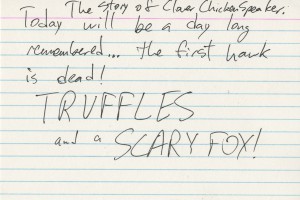 The Story of Claer ChickenSpeaker.
Today will be a day long
remembered... the first hawk
is dead!
TRUFFLES
and a SCARY FOX!